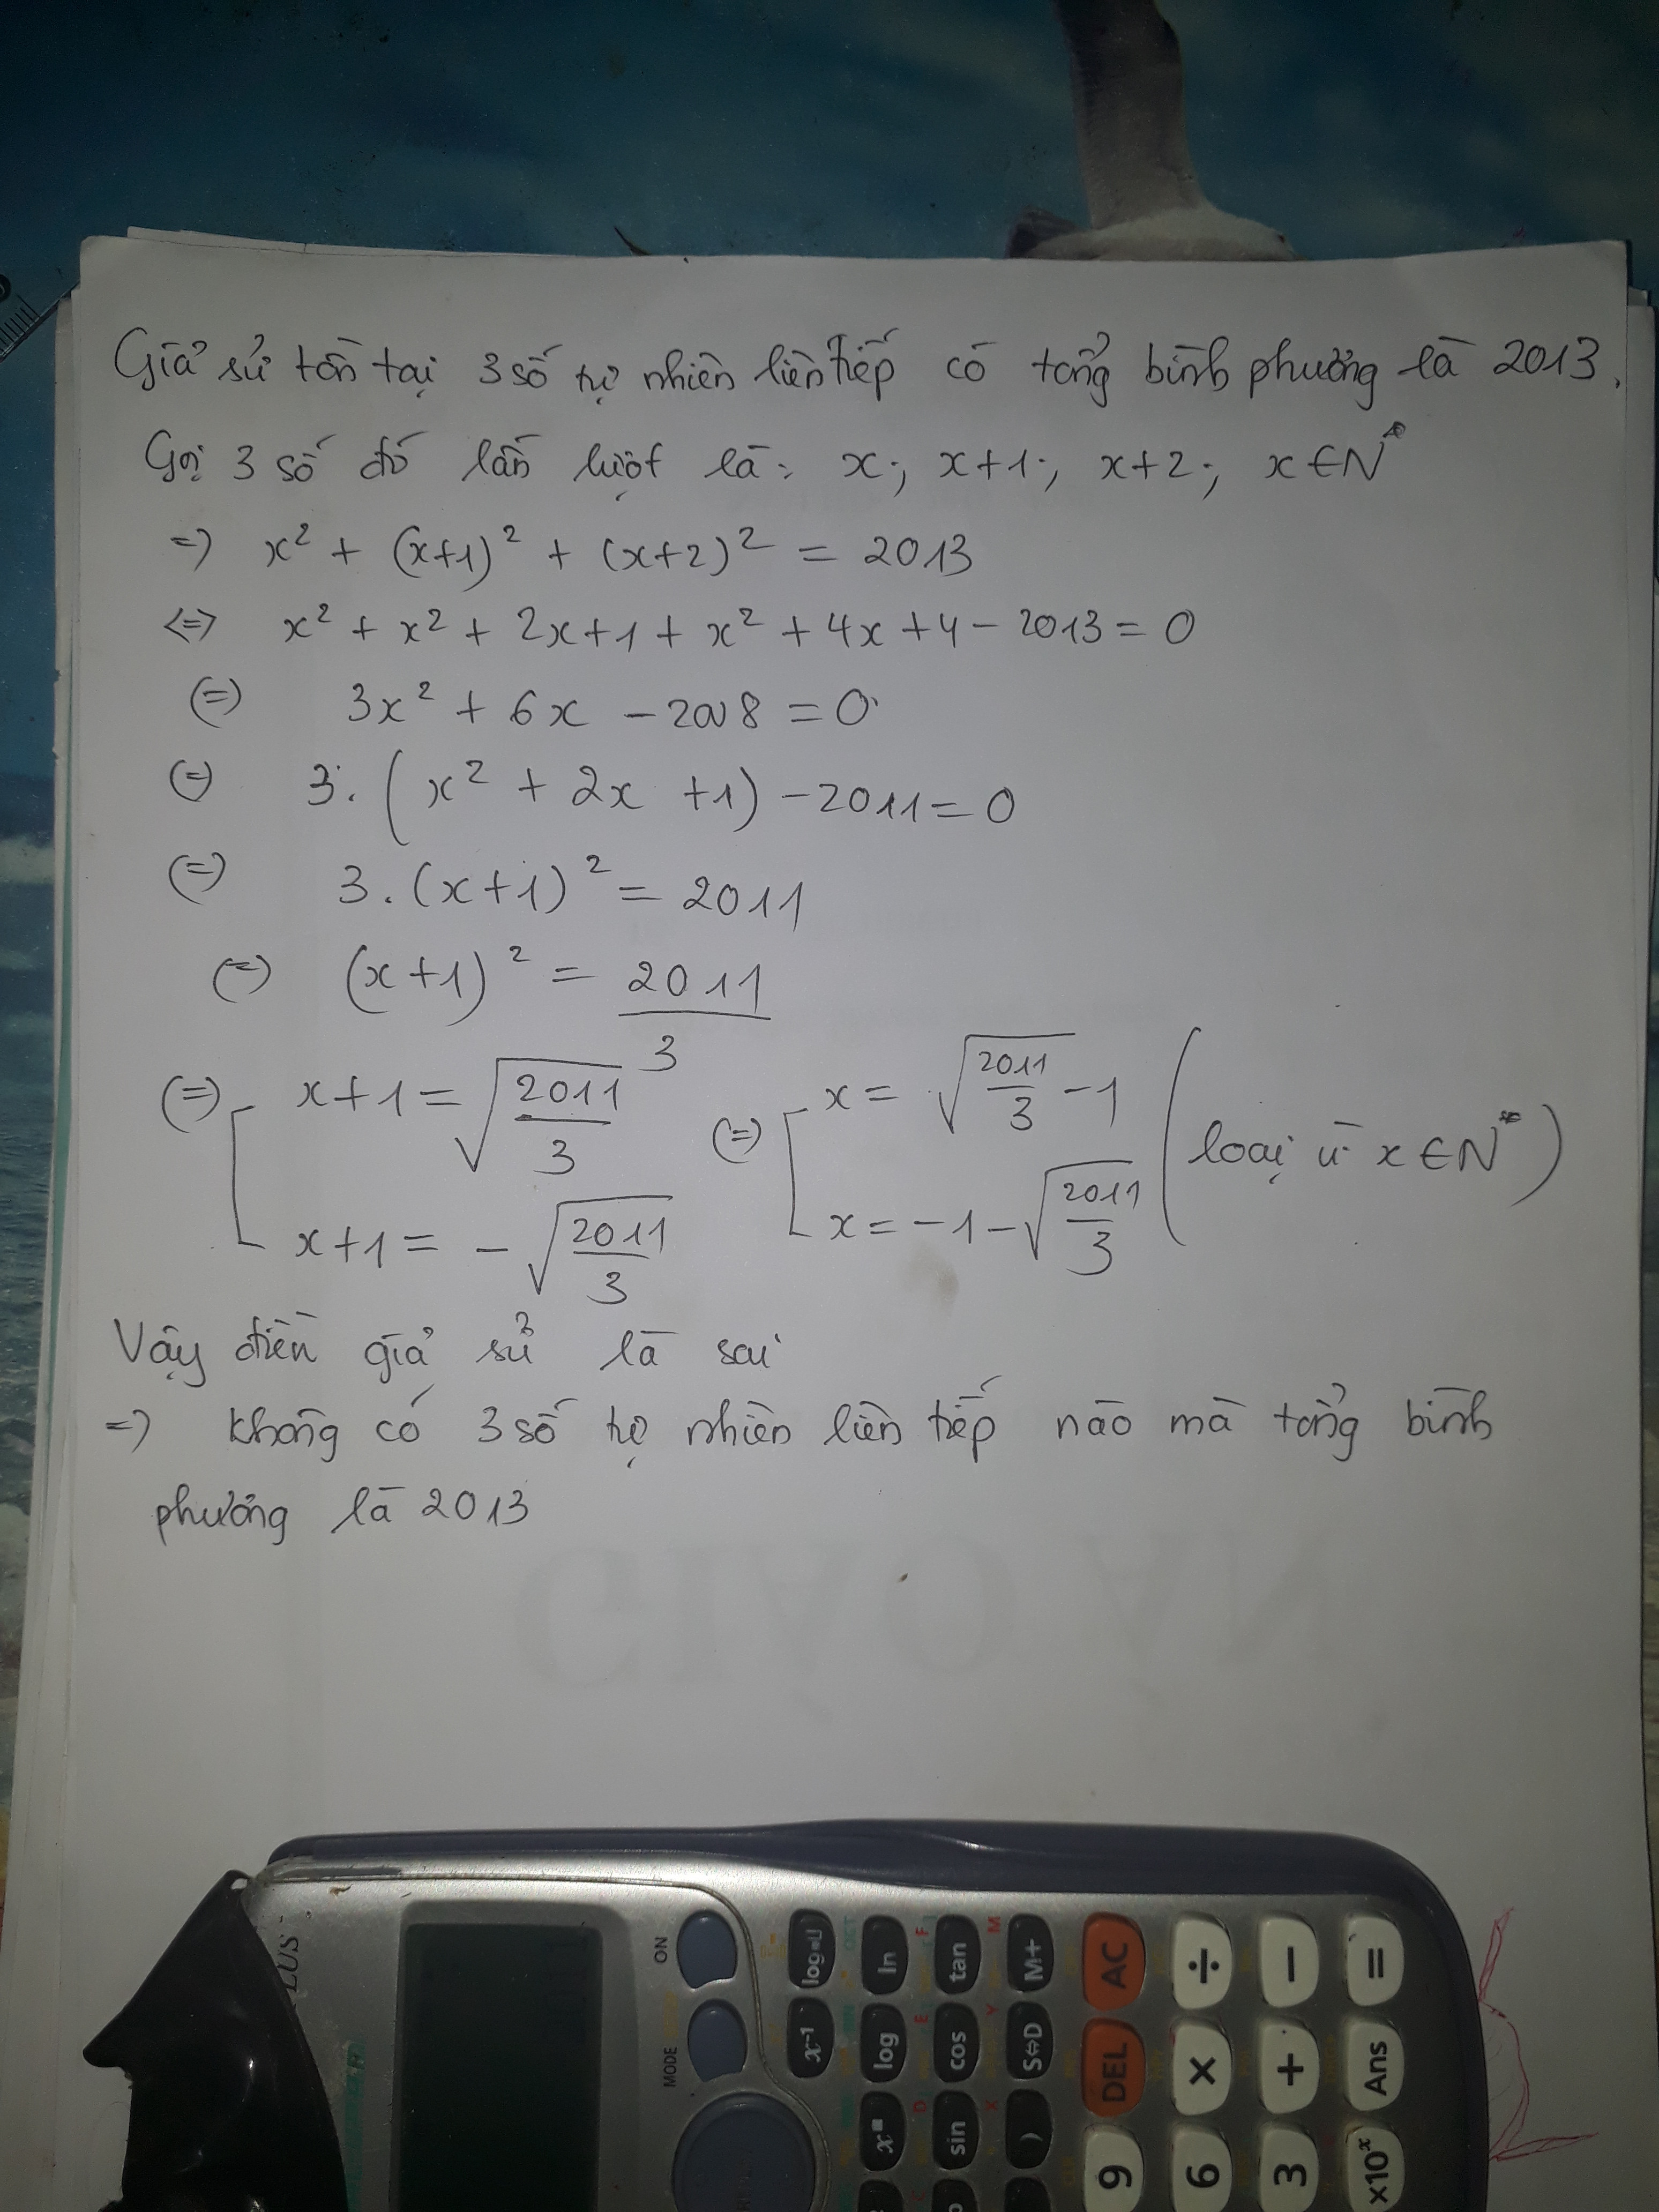 Giả sử tồn tại 3 số tự nhiên liên tiếp có tổng bình phương là 2013.
Gọi 3 số đó lần lượt là: x; x+1; x+2; x∈N*
=> x² + (x+1)² + (x+2)² = 2013
<=> x² + x² + 2x+1 + x² + 4x + 4 - 2013 = 0
(=) 3x² + 6x - 2008 = 0
(=) 3. (x² + 2x +1) - 2011 = 0
(=) 3. (x+1)² = 2011
(=) (x+1)² = 2011/3
(=) [ x+1 = √(2011/3) (=) [ x = √(2011/3) - 1 (loại vì x∈N*)
x+1 = - √(2011/3) x = -1 - √(2011/3)
Vậy điều giả sử là sai
=> Không có 3 số tự nhiên liên tiếp nào mà tổng bình
phương là 2013
GIÁO ÁN
LUS
ON
MODE
x⁻¹ log
x■ log ln
sin cos tan
) S⇔D M+
9 DEL AC
6 × ÷
3 + −
×10ˣ Ans =